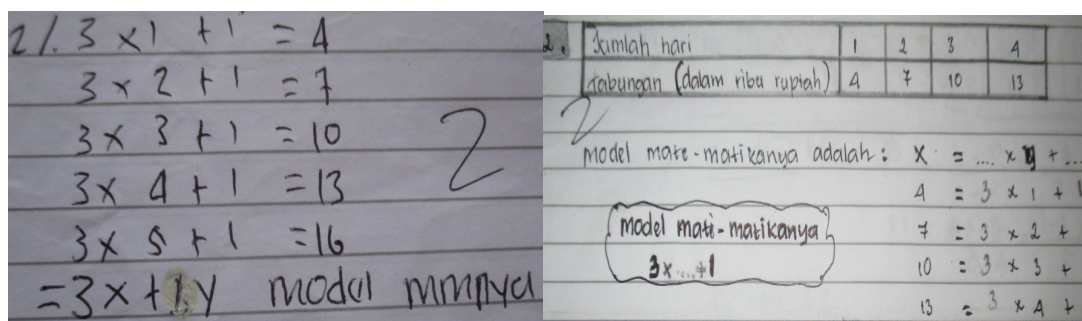 2/. 3 x 1 + 1 = 4
3 x 2 + 1 = 7
3 x 3 + 1 = 10
3 x 4 + 1 = 13
3 x 5 + 1 = 16
= 3x + 1y modal mmnya
2
2. Jumlah hari 1 2 3 4
Tabungan (dalam ribu rupiah) 4 7 10 13
2
Model mate-matikanya adalah : x = .... x y + ...
4 = 3 x 1 + 1
7 = 3 x 2 +
10 = 3 x 3 +
13 = 3 x 4 +
model mati-matikanya
3x ... +1